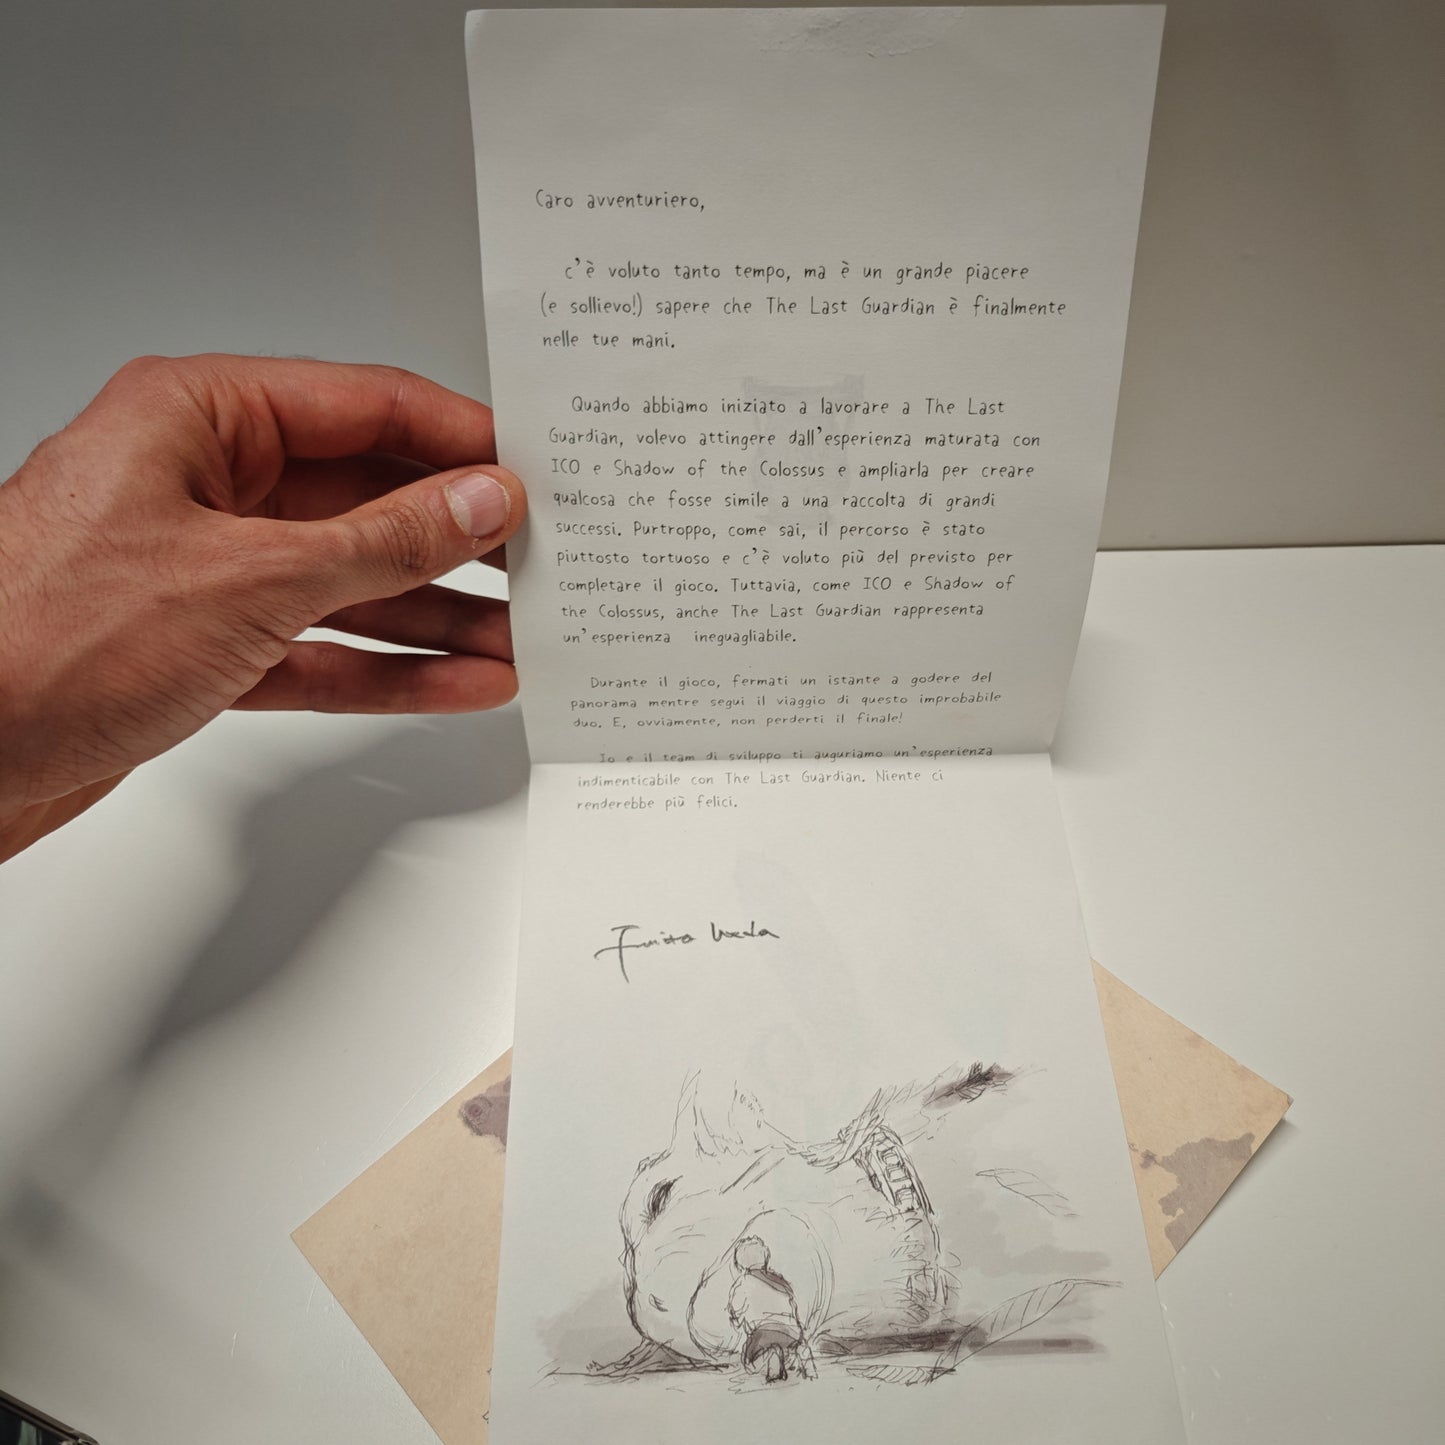 Caro avventuriero,
c'è voluto tanto tempo, ma è un grande piacere
(e sollievo!) sapere che The Last Guardian è finalmente
nelle tue mani.
Quando abbiamo iniziato a lavorare a The Last
Guardian, volevo attingere dall'esperienza maturata con
ICO e Shadow of the Colossus e ampliarla per creare
qualcosa che fosse simile a una raccolta di grandi
successi. Purtroppo, come sai, il percorso è stato
piuttosto tortuoso e c'è voluto più del previsto per
completare il gioco. Tuttavia, come ICO e Shadow of
the Colossus, anche The Last Guardian rappresenta
un'esperienza ineguagliabile.
Durante il gioco, fermati un istante a godere del
panorama mentre segui il viaggio di questo improbabile
duo. E, ovviamente, non perderti il finale!
Io e il team di sviluppo ti auguriamo un'esperienza
indimenticabile con The Last Guardian. Niente ci
renderebbe più felici.
Fumito Ueda